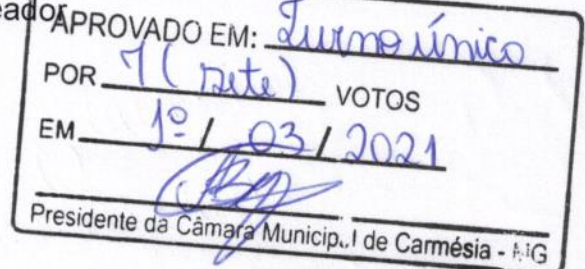 eador
APROVADO EM: Turno único
POR 7 (sete) VOTOS
EM 1º / 03 / 2021
Presidente da Câmara Municipal de Carmésia - MG